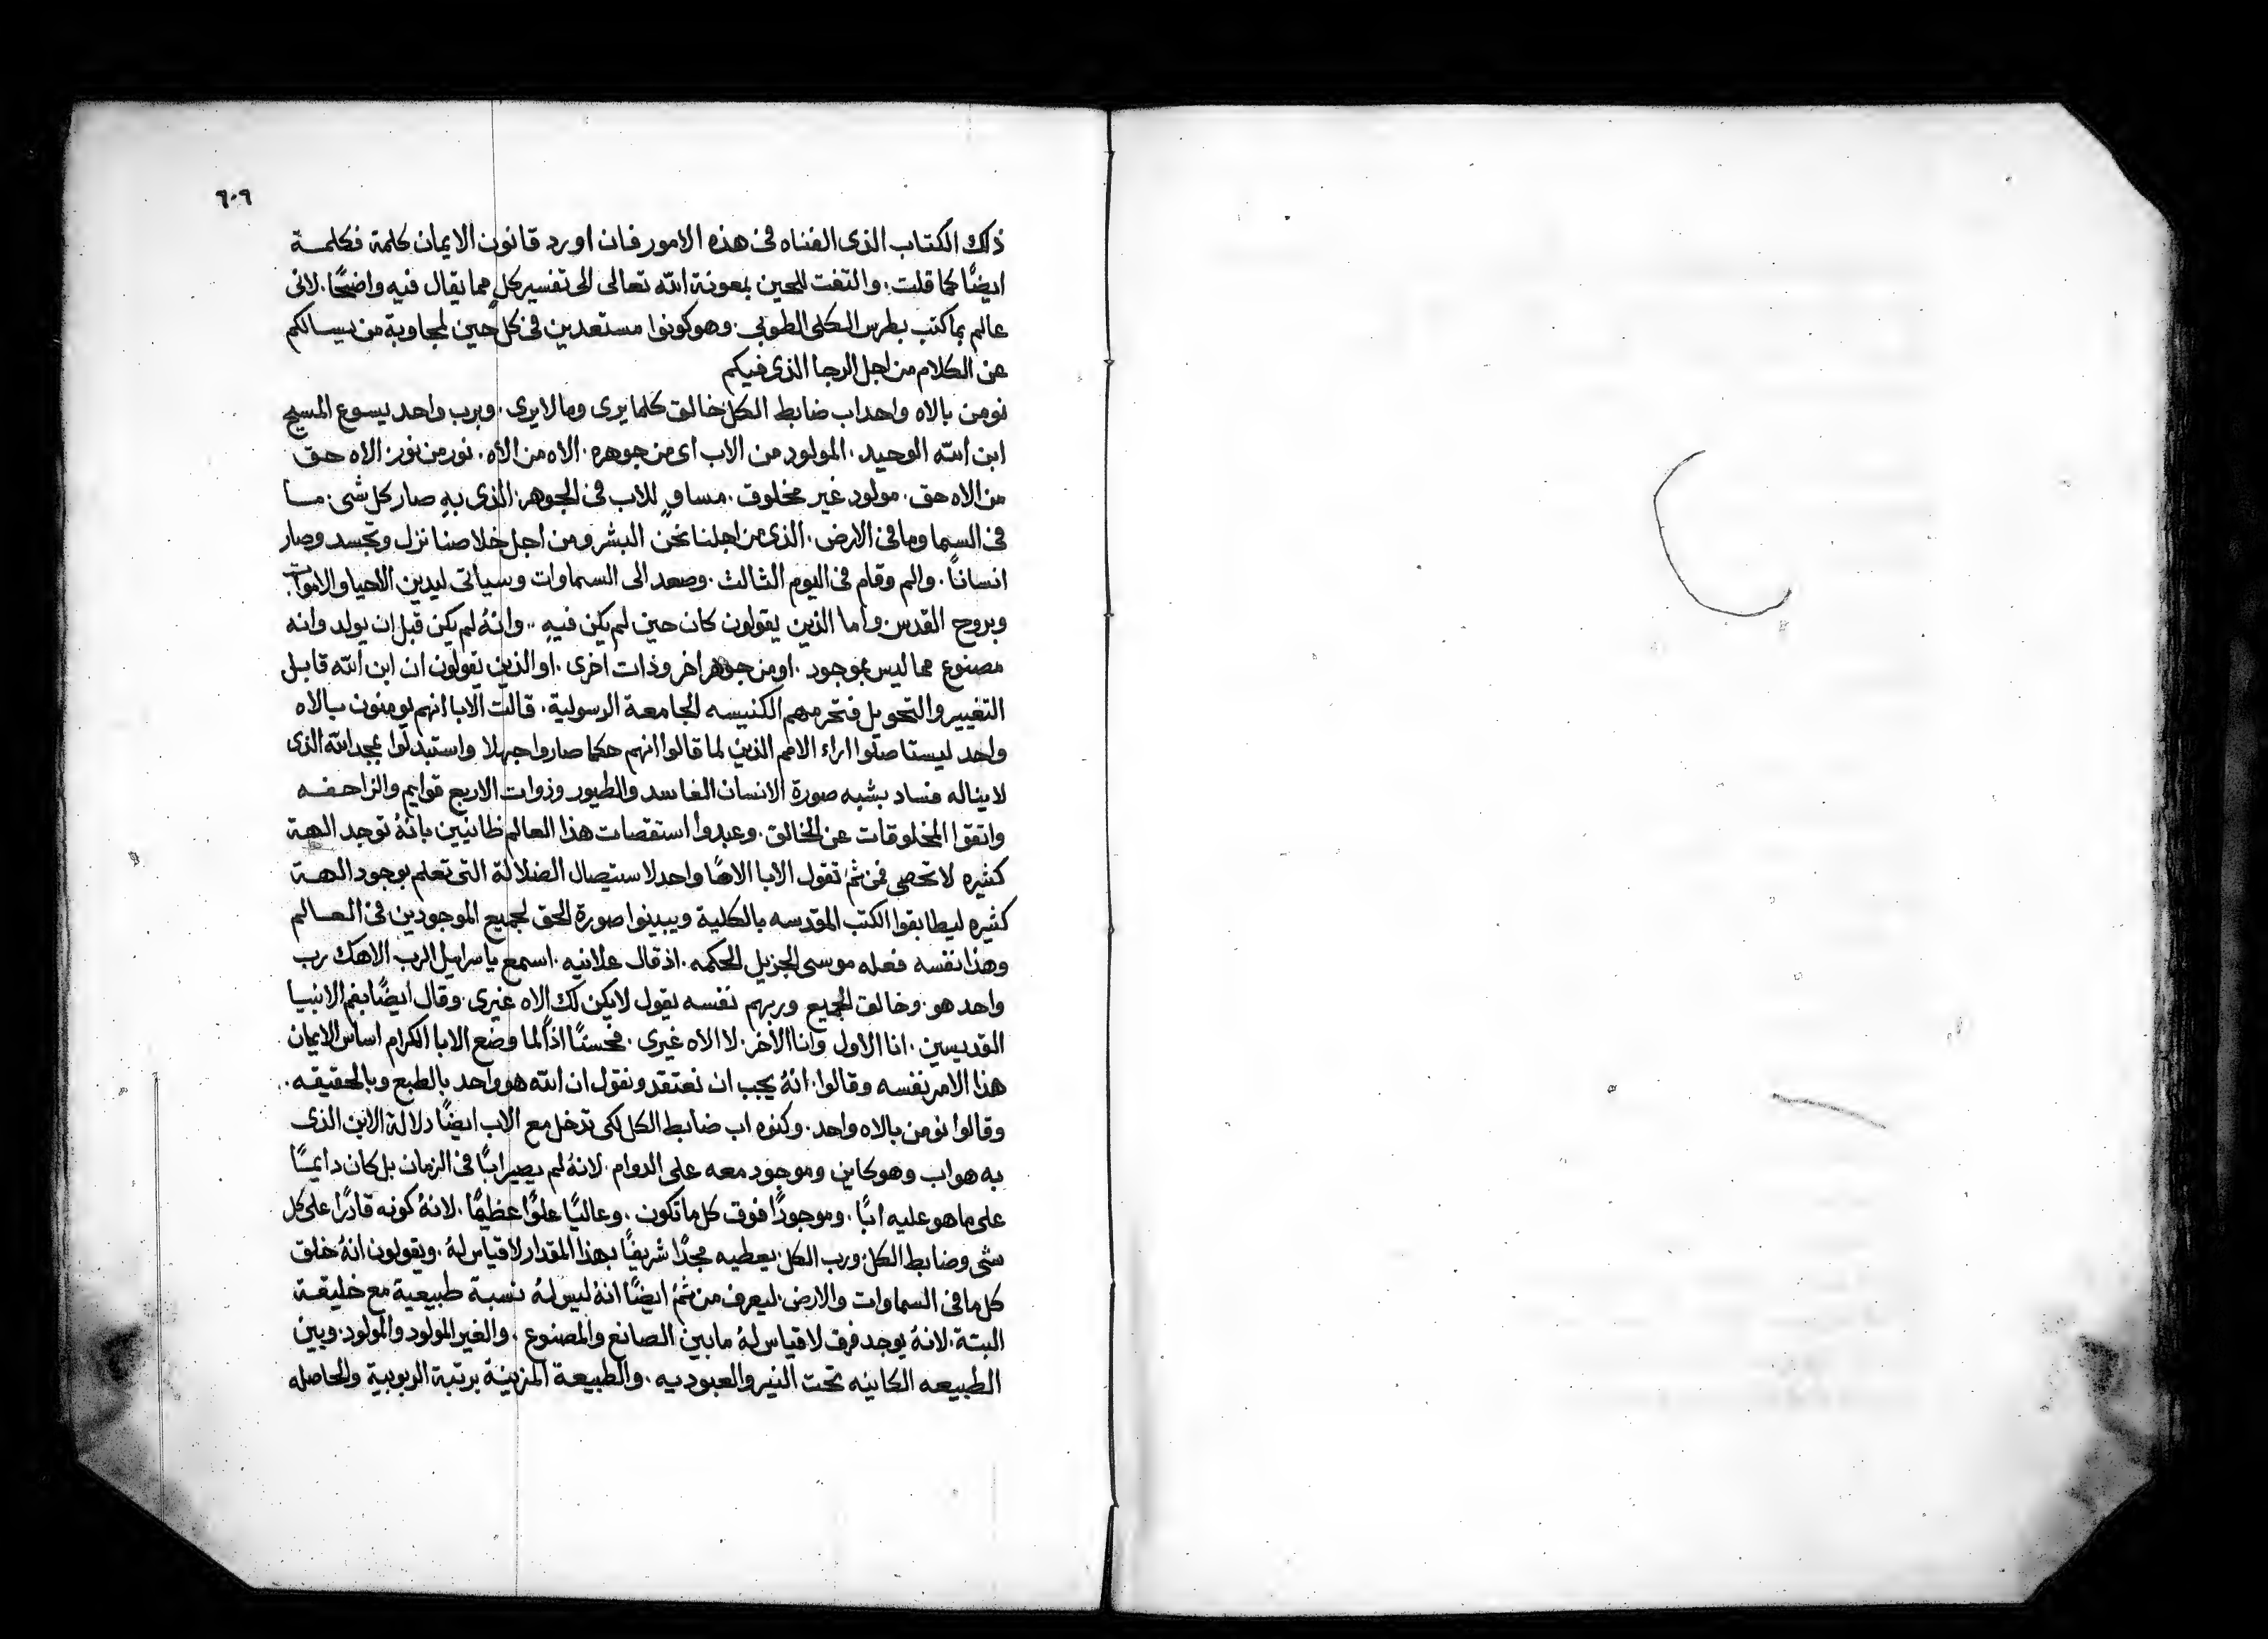 ٦٠٦
ذلك الكتاب الذى الفناه فى هذه الامور فان اورد قانون الايمان كلمة فكلمة
ايضًا كما قلت: والتفت للحين بمعونة الله تعالى الى تفسير كل مما يقال فيه واضحًا. لانى
عالم بما كتب بطرس الكلى الطوبى. وهو كونوا مستعدين فى كل حين لمجاوبة من يسالكم
عن الكلام من اجل الرجا الذى فيكم
نومن بالاه واحد اب ضابط الكل خالق كلما يرى وما لا يرى. وبرب واحد يسوع المسيح
ابن الله الوحيد. المولود من الاب اى من جوهره. الاه من الاه. نور من نور. الاه حق
من الاه حق. مولود غير مخلوق. مساوٍ للاب فى الجوهر. الذى بهِ صار كل شى. ما
فى السما وما فى الارض. الذى من اجلنا نحن البشر ومن اجل خلاصنا نزل وتجسد وصار
انسانًا. والم وقام فى اليوم الثالث. وصعد الى السماوات وسياتى ليدين الاحيا والاموات.
وبروح القدس واما الذين يقولون كان حين لم يكن فيهِ .. وانهُ لم يكن قبل ان يولد وانه
مصنوع مما ليس بموجود. او من جوهر اخر وذات اخرى. او الذين يقولون ان ابن الله قابل
التغيير والتحويل فتحرمهم الكنيسه الجامعة الرسولية. قالت الابا انهم يومنون بالاه
واحد ليستاصلوا اراء الامم الذين لما قالوا انهم حكما صاروا جهلا واستبدلوا بمجد الله الذى
لا يناله فساد بشبه صورة الانسان الفاسد والطيور وذوات الاربع قوايم والزاحفه
واتقوا المخلوقات عن الخالق. وعبدوا استقصات هذا العالم ظانيين بانهُ توجد الهة
كثيره لا تحصى فمن ثمَّ تقول الابا الاهًا واحد لاستيصال الضلالة التى تعلم بوجود الهة
كثيره ليطابقوا الكتب المقدسه بالكلية ويبينوا صورة الحق لجميع الموجودين فى العالم
وهذا نفسه فعله موسى الجزيل الحكمه. اذ قال علانيه. اسمع ياسراييل الرب الاهك رب
واحد هو. وخالق الجميع وربهم نفسه يقول لا يكن لك الاه غيرى. وقال ايضًا بفم الانبيا
القديسين. انا الاول وانا الاخر. لا الاه غيرى. فحسنًا اذًا لما وضع الابا الكرام اساس الايمان
هذا الامر نفسه وقالوا: انهُ يجب ان نعتقد ونقول ان الله هو واحد بالطبع وبالحقيقه.
وقالوا نومن بالاه واحد. وكنوه اب ضابط الكل لكى تدخل مع الاب ايضًا دلالة الابن الذى
به هو اب وهو كاين وموجود معه على الدوام. لانهُ لم يصير ابًا فى الزمان بل كان دايمًا
على ما هو عليه ابًا. وموجودًا فوق كل ما تكون. وعاليًا علوًا عظيمًا. لانهُ كونه قادرًا على كل
شى وضابط الكل ورب الكل يعطيه مجدًا شريفًا بهذا المقدار لا قياس لهُ. ويقولون انهُ خلق
كل ما فى السماوات والارض. ليعرف من ثمَّ ايضًا انهُ ليس لهُ نسبة طبيعية مع خليقة
البتة. لانهُ يوجد فرق لا قياس لهُ ما بين الصانع والمصنوع. والغير المولود والمولود. وبين
الطبيعه الكاينه تحت النير والعبوديه. والطبيعة المزينة برتبة الربوبية والحاصله